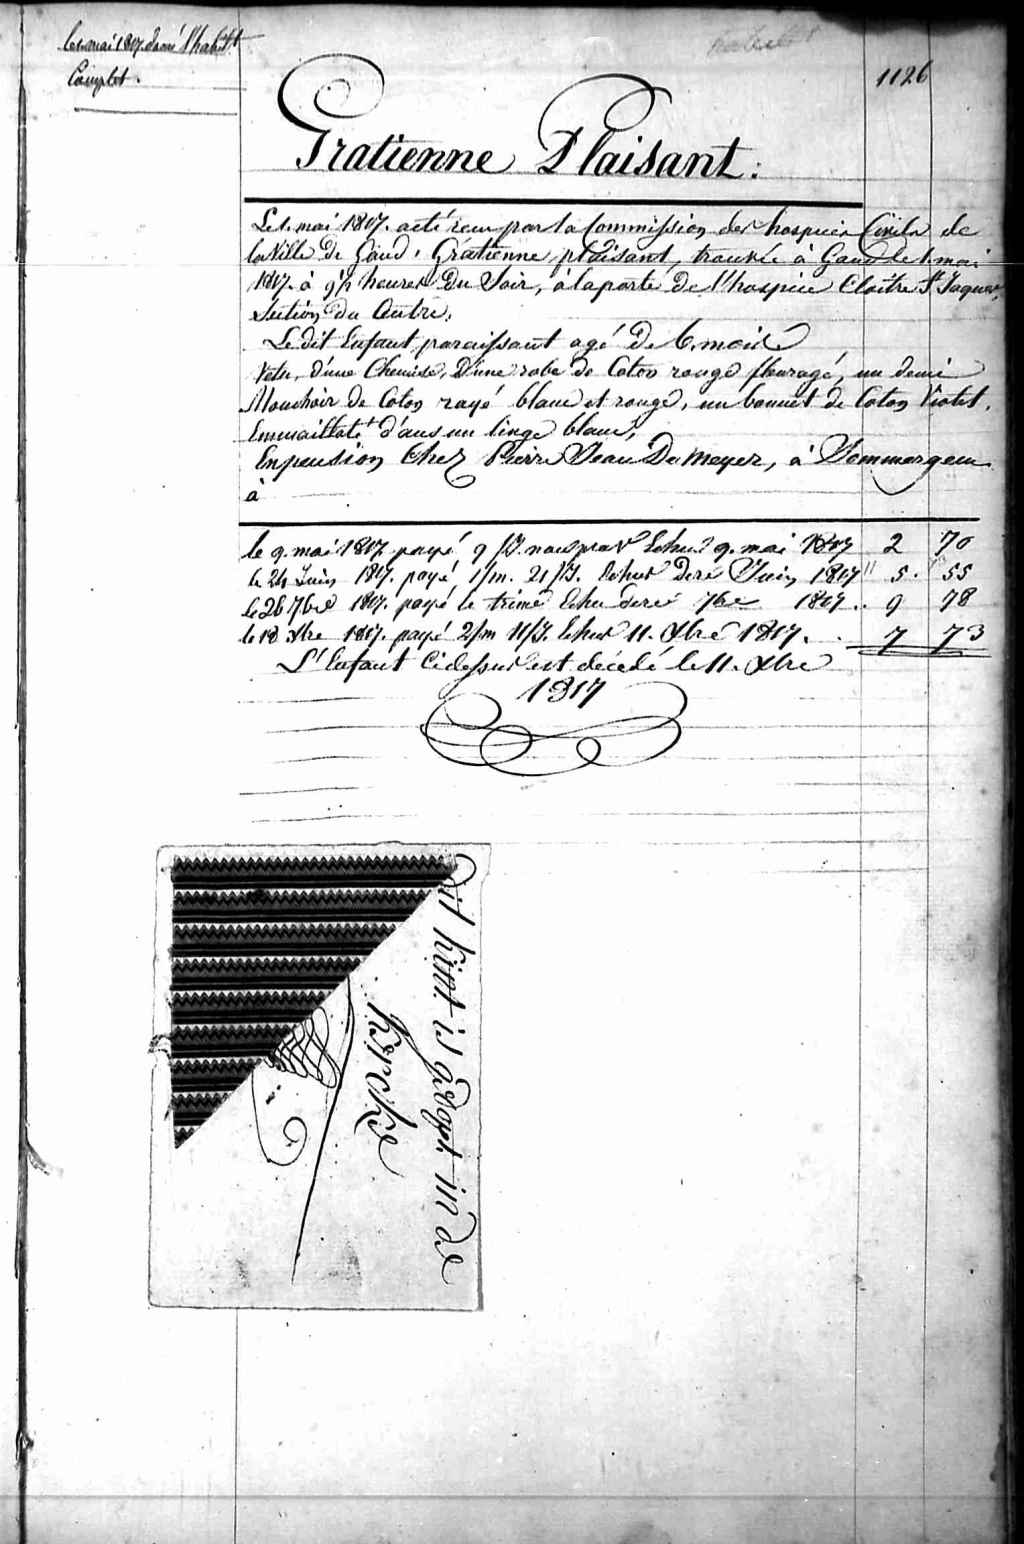 le 1. mai 1817. donné l'habit.t
Complet.
1126
Gratienne Plaisant.
Le 1. mai 1817. a été reçu par la Commission des hospices Civils de
la Ville de Gand, Gratienne plaisant, trouvée à Gand le 1. mai
1817. à 9½ heures Du Soir, à la porte De l'hospice Cloître St. Jaques,
Section du Centre,
Le dit Enfant paraissant agé De 6. mois
Vetu, d'une Chemise, D'une robe de Coton rouge fleuragé, un demi
Mouchoir de Coton rayé blanc et rouge, un bonnet de Coton Violet,
Emmailloté dans un linge blanc,
En pension Chez Pierre Jean De Meyer, à Sommergem
à
le 9. mai 1817 payé 9/J. Echus 9. mai 1817 2 70
le 24 Juin 1817. payé 1/m. 21/J. Echus Juin 1817 5. 55
le 26 7bre 1817. payé le trime Echu 7bre 1817. 9 78
le 18 Xbre 1817. payé 2/m 11/J. Echus 11. Xbre 1817. 7 73
L'Enfant Cidessus est décédé le 11. Xbre
1817
Dit kint is gedopt in de
kercke